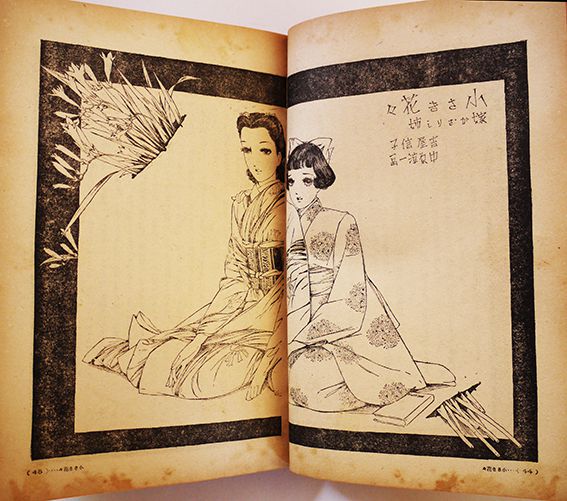 小さき花々
嫁かざりし姉
吉屋信子
中原淳一画
(44)・・・小さき花々
小さき花々・・・(45)